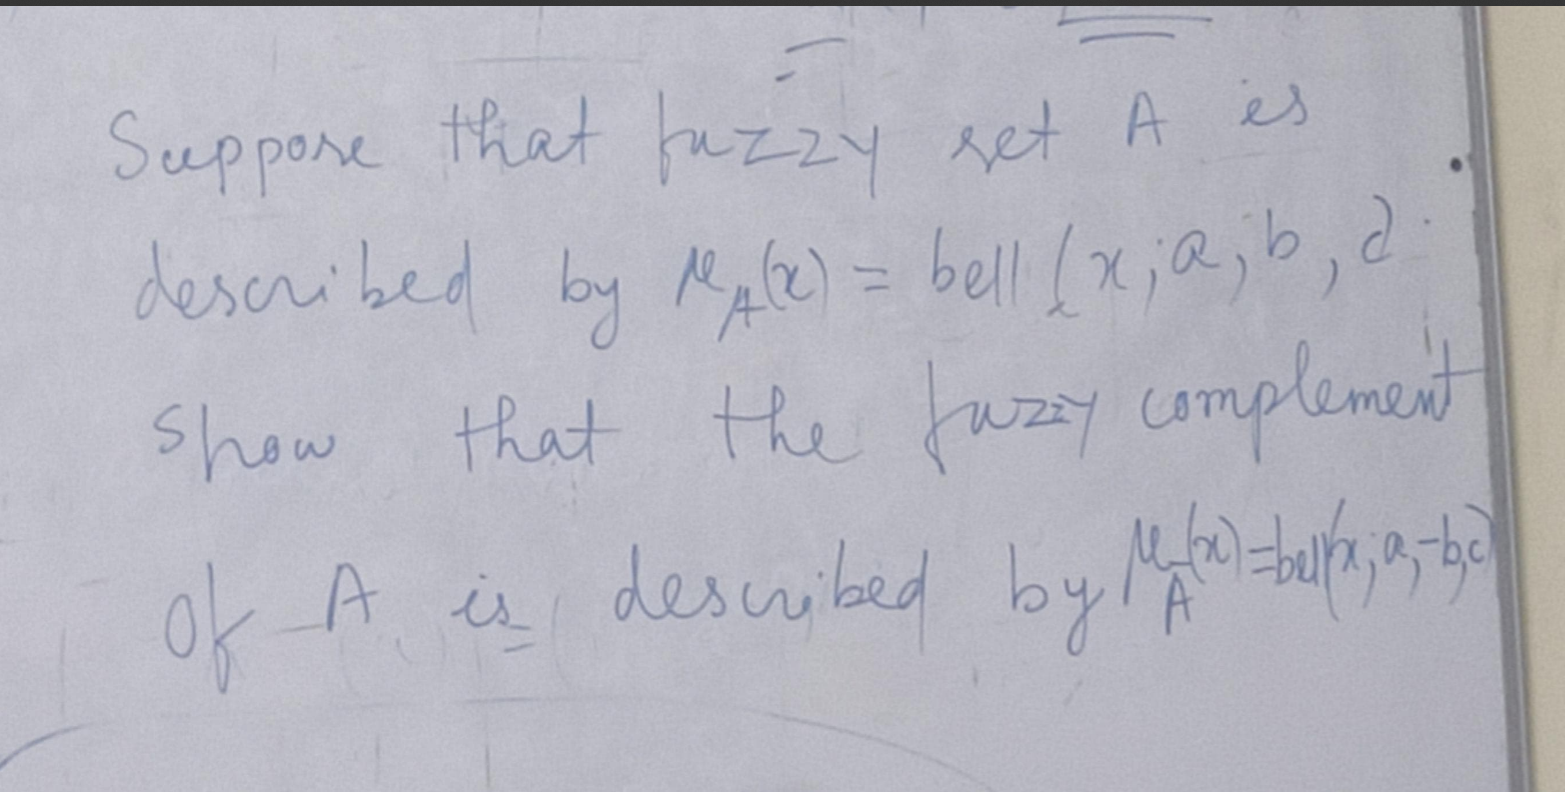 Suppose that fuzzy set A is
described by μ_A(x) = bell (x; a, b, c)
show that the fuzzy complement
of A is described by μ_Ā(x) = bell(x; a, -b, c)